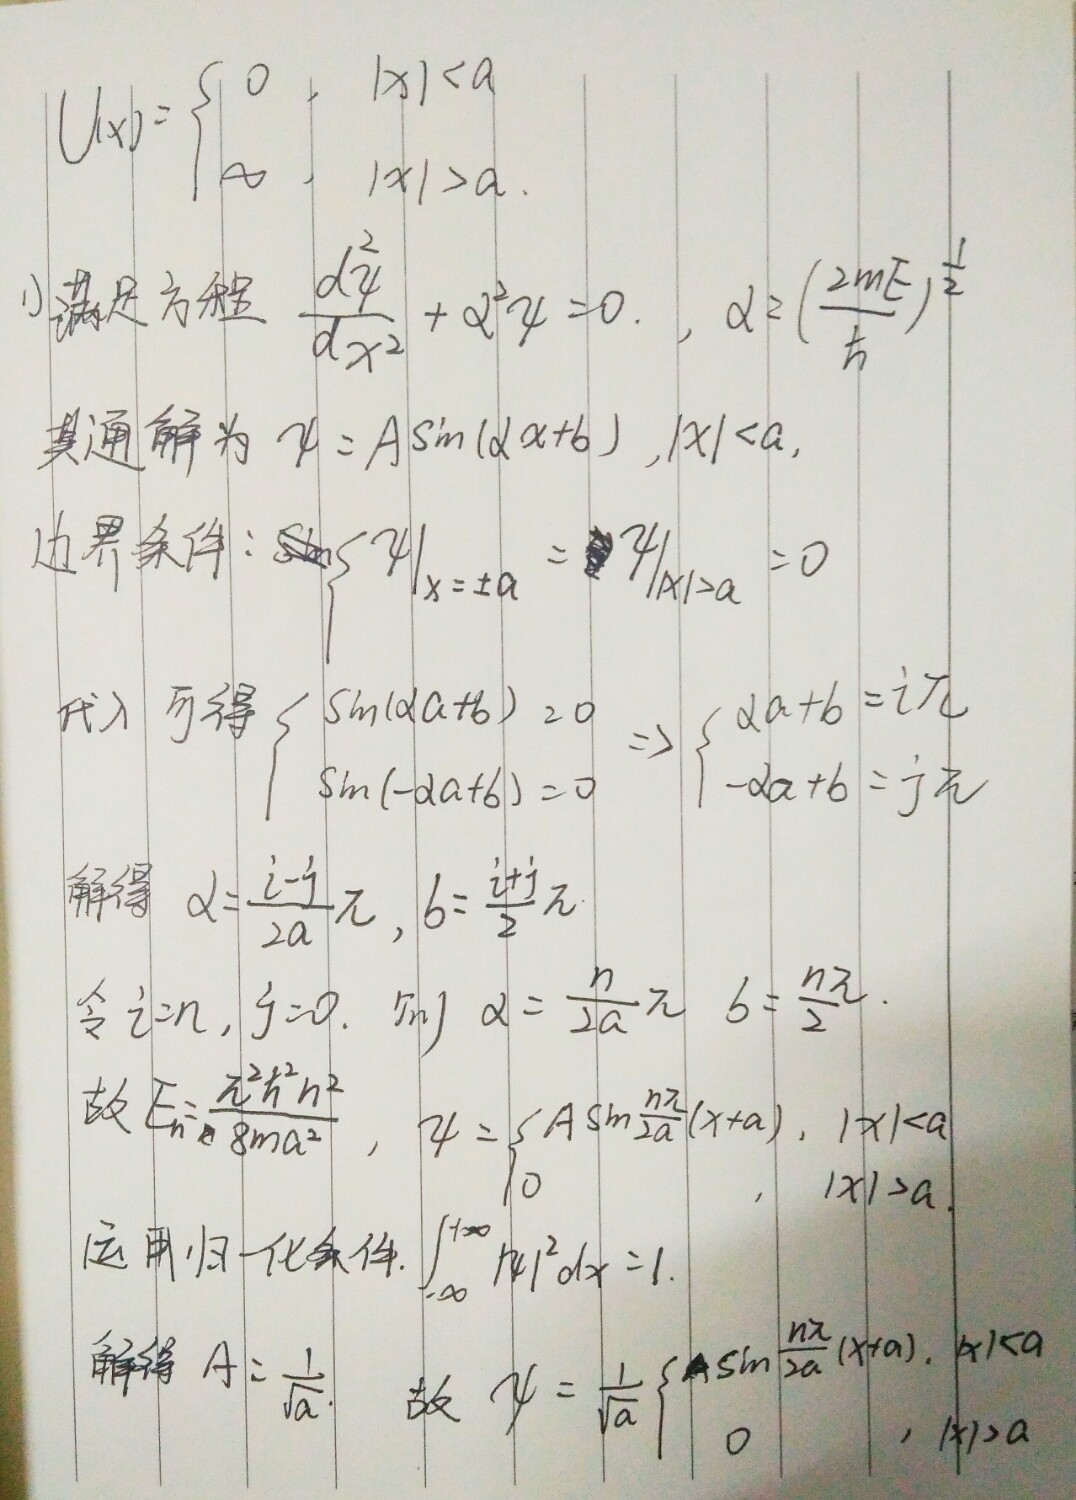 U(x) = { 0 , |x| < a
∞ , |x| > a .
1) 满足方程 d²ψ/dx² + α²ψ = 0 . , α = (2mE/ħ)^(1/2)
其通解为 ψ = A sin(αx+b) , |x| < a ,
边界条件 : { ψ|x=±a = ψ||x|>a = 0
代入可得 { sin(αa+b) = 0 => { αa+b = iπ
sin(-αa+b) = 0 -αa+b = jπ
解得 α = (i-j)/2a π , b = (i+j)/2 π .
令 i=n , j=0 . 则 α = n/2a π b = nπ/2 .
故 En = π²ħ²n²/8ma² , ψ = { A sin nπ/2a (x+a) , |x| < a
0 , |x| > a .
运用归一化条件 . ∫_-∞^+∞ |ψ|² dx = 1 .
解得 A = 1/√a . 故 ψ = 1/√a { sin nπ/2a (x+a) , |x| < a
0 , |x| > a